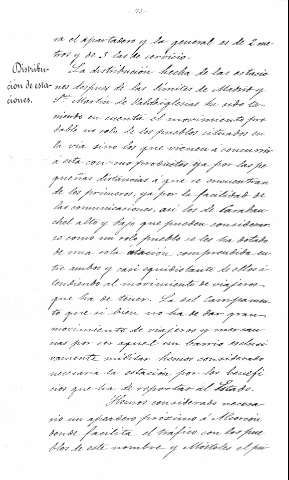 ra el apartadero y la general es de 2 me-
tros y de 3 las de servicio.
Distribu-
ción de esta-
ciones.
La distribución hecha de las estacio-
nes despues de las límites de Madrid y
Sn. Martin de Valdeiglesias ha sido te-
niendo en cuenta el movimiento pro-
bable no solo de los pueblos situados en
la via sino los que vienen a concurrir
a esta con sus productos ya por las pe-
queñas distancias a que se encuentran
de los primeros, ya por la facilidad de
las comunicaciones, asi los de Caraban-
chel alto y bajo que pueden considerar-
se como un solo pueblo se les ha dotado
de una sola estación comprendida en-
tre ambos y casi equidistante de ellos a-
tendiendo al movimiento de viajeros
que ha de tener. La del Campamen-
to que si bien no ha de dar gran
movimiento de viajeros y mercan-
cias por ser aquel un barrio esclusi-
vamente militar hemos considerado
necesaria la estación por los benefi-
cios que ha de reportar al Estado.
Hemos considerado necesa-
rio un apeadero próximo á Alcorcón
donde facilita el tráfico con los pue-
blos de este nombre y Móstoles el pri-